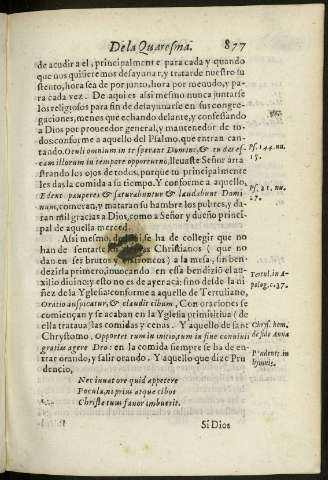 De la Quaresma. 877
de acudir a el, principalmente para cada y quando
que nos quisieremos desayunar, y tratar de nuestro su
stento, hora sea de por junto, hora por menudo, y pa-
ra cada vez. De aqui es assi mesmo nunca juntarse
los religiosos para fin de desayunarse en sus congre-
gaciones, menos que echando delante, y confessando
a Dios por proueedor general, y mantenedor de to-
dos conforme a aquello del Psalmo, que entran can-
tando. Oculi omnium in te sperant Domine, & tu das es-
cam illorum in tempore opportuno, lleuaste Señor arra
strando los ojos de todos, porque tu principalmente
les das la comida a su tiempo. Y conforme a aquello,
Edent pauperes & saturabuntur & laudabunt Domi-
num, comeran, y mataran su hambre los pobres, y da-
ran mil gracias a Dios, como a Señor y dueño princi-
pal de aquella merced.
Assi mesmo, se ha de colegir que no
han de sentarse Christianos (que no
dan en ser brutos y) a la mesa, sin ben-
dezirla primero, inuocando en essa bendiziõ el au-
xilio diuino: y esto no es de ayer acà; sino desde la ni-
ñez de la Yglesia conforme a aquello de Tertuliano,
Oratio auspicatur, & claudit cibum, Con oraciones se
comiençan y se acaban en la Yglesia primitiua (de
ella trataua) las comidas y cenas. Y aquello de sant
Chrysostomo. Oportet tum in initio, tum in fine conuiuii
gratias agere Deo: en la comida siempre se ha de en-
trar orando, y salir orando. Y aquello que dize Pru
dencio,
Nec iuuat ore quid appetere
Pocula, ni prius atque cibos
Christe tuus fauor imbuerit.
Si Dios
Ps. 144. nu.
15.
Ps. 21. nu.
27.
Tertul. in A-
polog. c. 37.
Chrys. hom.
de fide Annæ
Prudent. in
hymnis.